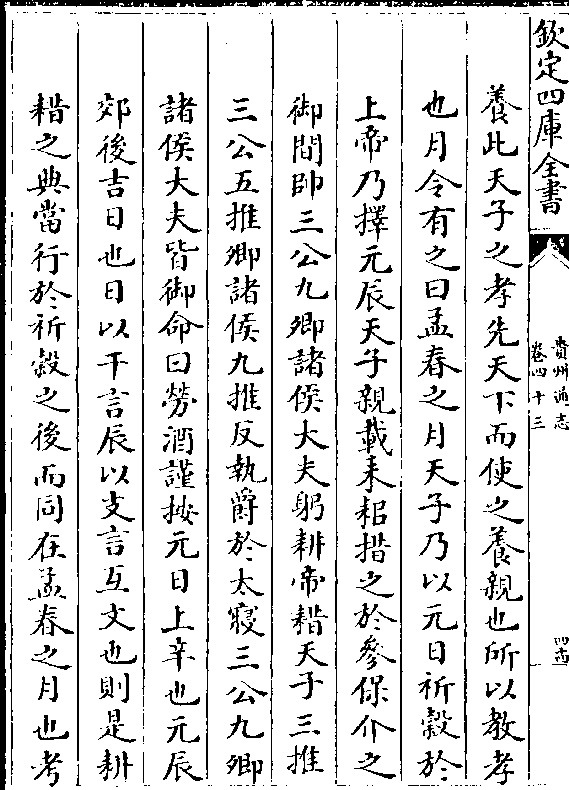 欽定四庫全書
貴州通志
卷四十三
四十四
養此天子之孝先天下而使之養親也所以教孝
也月令有之曰孟春之月天子乃以元日祈穀於
上帝乃擇元辰天子親載耒耜措之於參保介之
御間帥三公九卿諸侯大夫躬耕帝耤天子三推
三公五推卿諸侯九推反執爵於太寢三公九卿
諸侯大夫皆御命曰勞酒謹按元日上辛也元辰
郊後吉日也日以干言辰以支言互文也則是耕
耤之典當行於祈穀之後而同在孟春之月也考